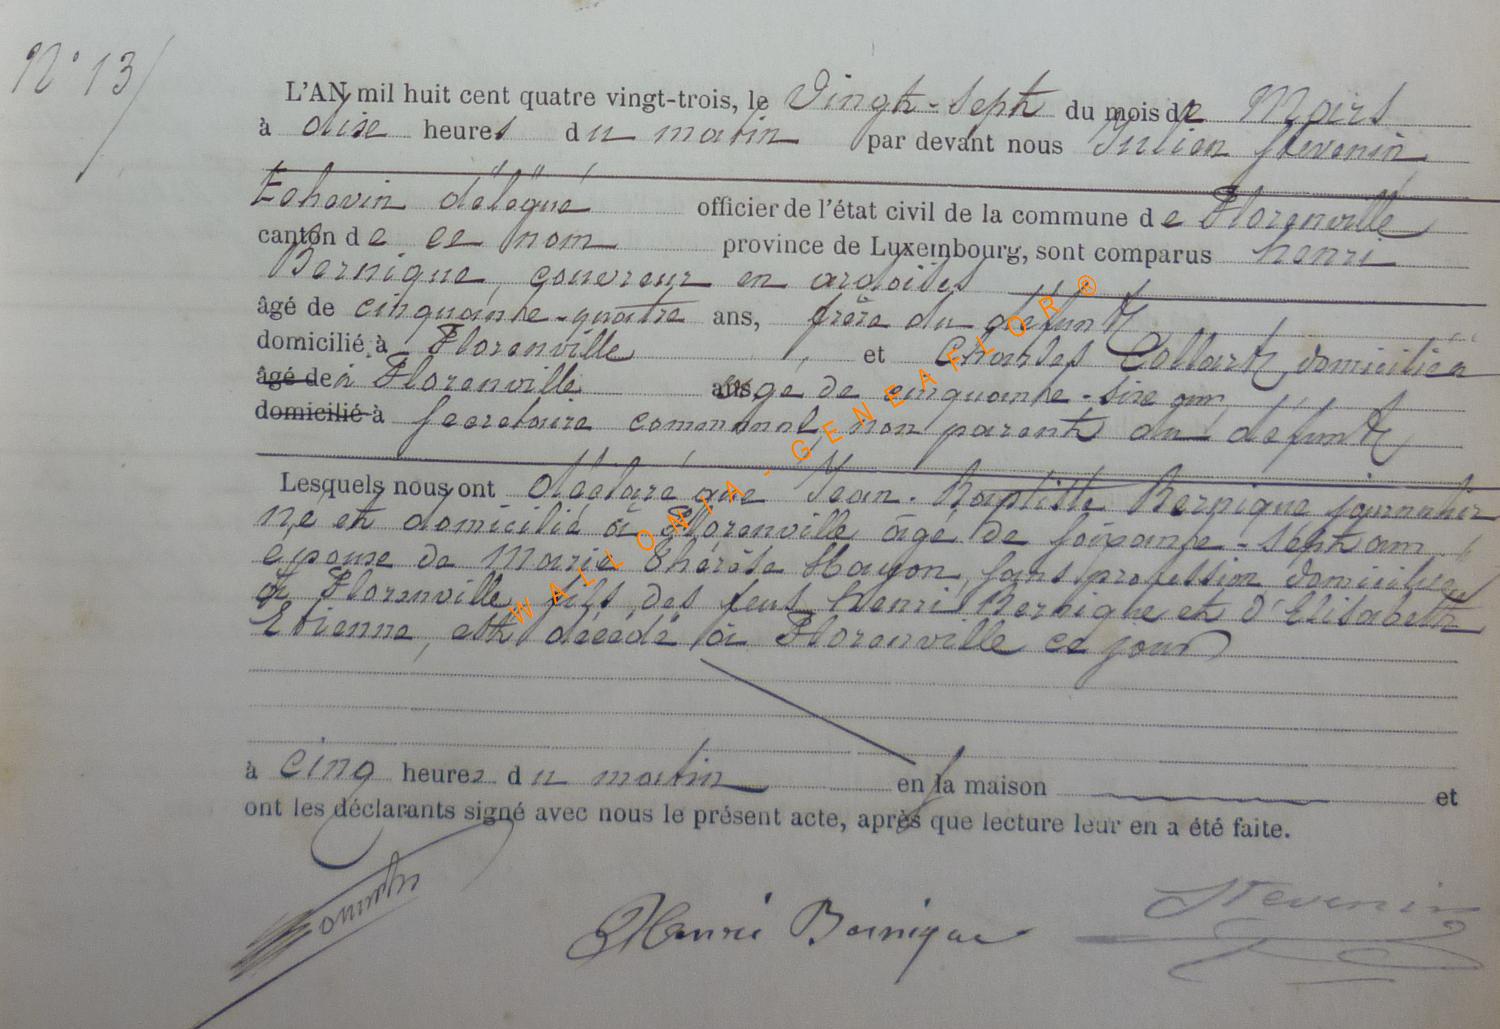 N° 13
L'AN mil huit cent quatre vingt-trois, le Vingt-sept du mois de Mars
à dixe heures du matin par devant nous Julien Stevenin
Echevin délégué officier de l'état civil de la commune de Florenville
canton de ce nom province de Luxembourg, sont comparus henri
Bernique, couvreur en ardoises
âgé de cinquante-quatre ans, frère du défunt
domicilié à Florenville et Charles Collart, domicilié
âgé de à Florenville ans âgé de cinquante-sixe ans
domicilié à secretaire communal, non parent du défunt
Lesquels nous ont déclaré que Jean-Baptiste Bernique journalier
né et domicilié à Florenville âgé de soixante-sept ans
epoux de Marie Thérèse Hayon, sans profession domiciliée
à Florenville, fils des feus henri Bernique et d'Elisabeth
Etienne, est décédé à Florenville ce jour
à cinq heures du matin en la maison et
ont les déclarants signé avec nous le présent acte, après que lecture leur en a été faite.
Henri Bernique
Stevenin
WALLONIA-GENEAFLOR®